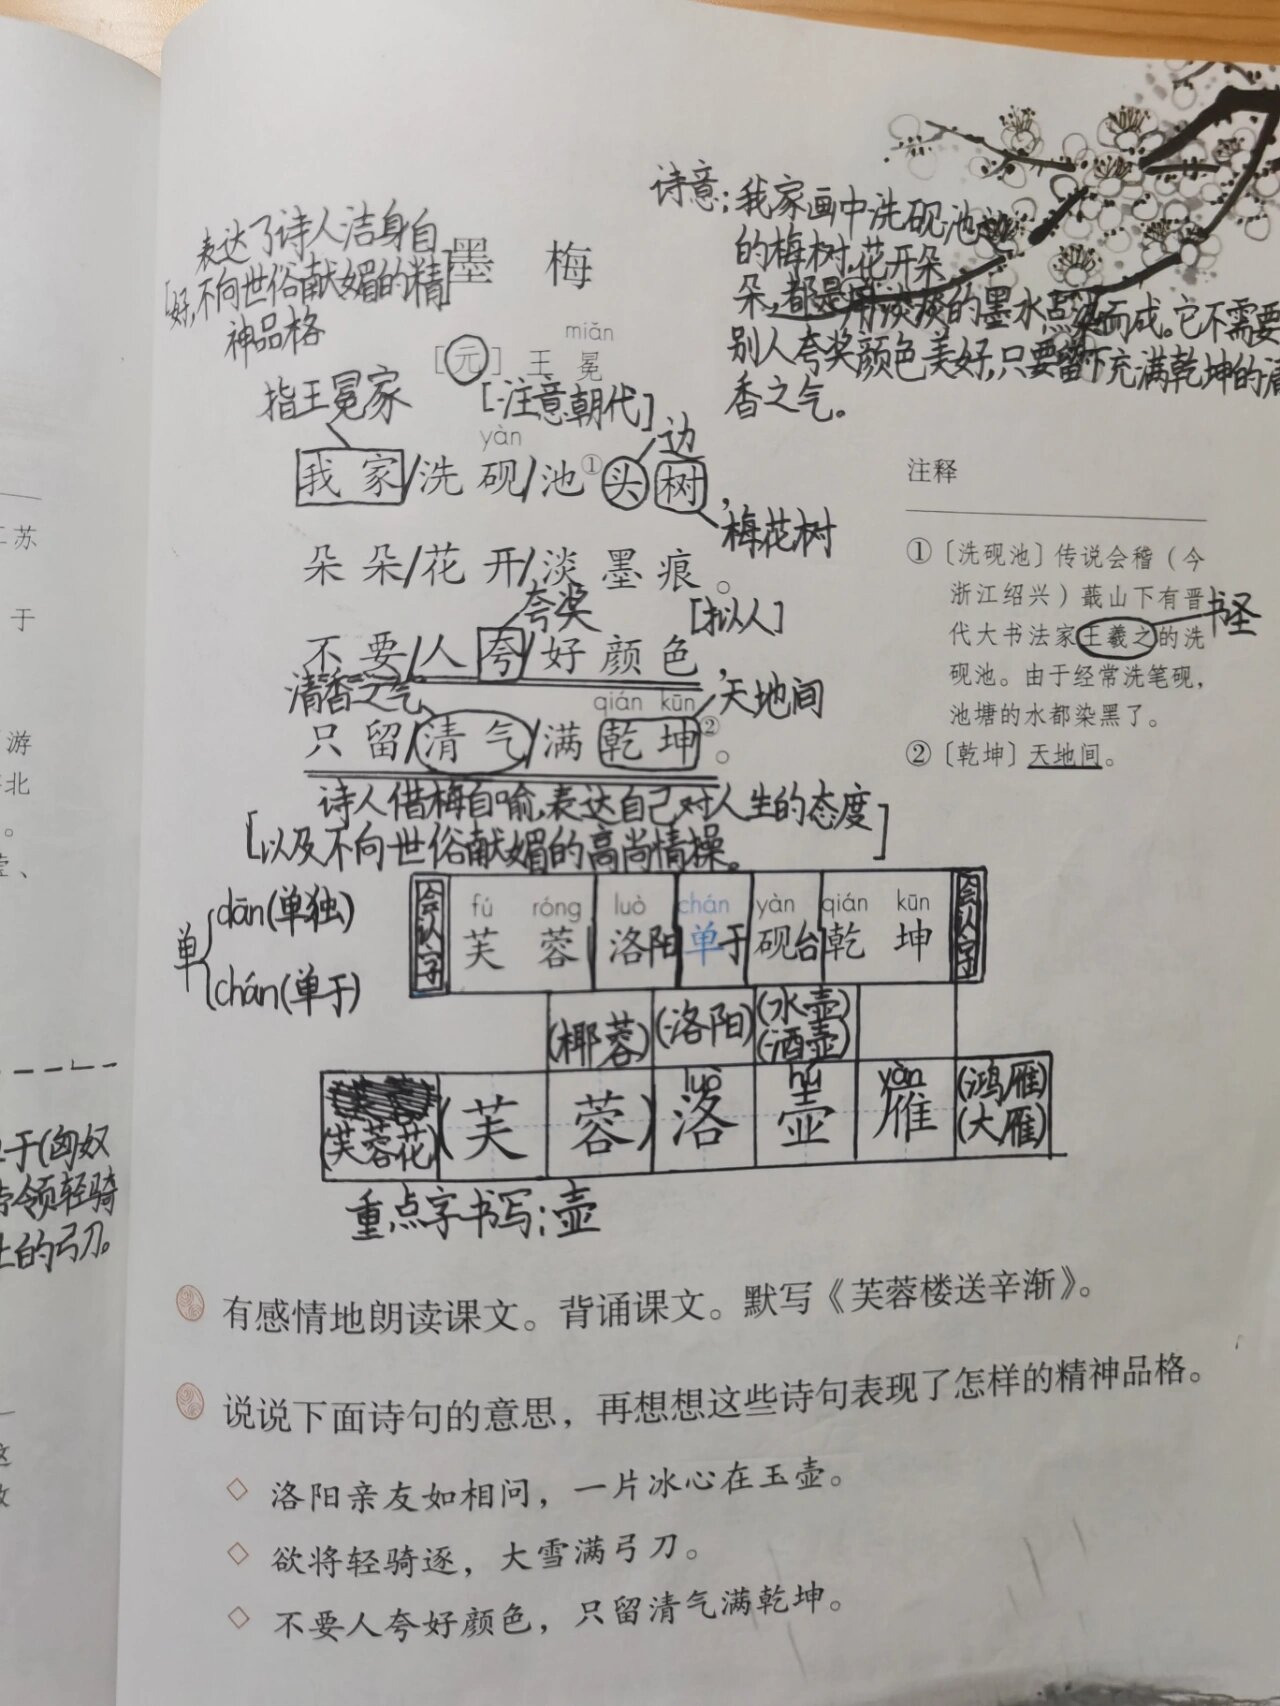 诗意;我家画中洗砚池边
的梅树,花开朵
朵,都是用淡淡的墨水点染而成。它不需要
别人夸奖颜色美好,只要留下充满乾坤的清
香之气。
表达了诗人洁身自
[好,不向世俗献媚的精]
神品格
墨 梅
miǎn
[元] 王 冕
指王冕家
[注意朝代]
yàn
边
我 家/洗 砚/池①头 树,
梅花树
朵 朵/花 开/淡 墨 痕。
夸奖
[拟人]
不 要/人 夸/好 颜 色,
清香之气
qián kūn
天地间
只 留/清 气/满 乾 坤②。
诗人借梅自喻,表达自己对人生的态度
[以及不向世俗献媚的高尚情操。]
注释
①〔洗砚池〕传说会稽(今
浙江绍兴)蕺山下有晋
代大书法家王羲之的洗
书圣
砚池。由于经常洗笔砚,
池塘的水都染黑了。
②〔乾坤〕天地间。
单
dān(单独)
chán(单于)
会认字
fú róng luò chán yàn qián kūn
芙 蓉 洛阳 单于 砚台 乾 坤
会认字
(椰蓉) (洛阳) (水壶)
(酒壶)
luò hú yàn
(芙蓉花) (芙 蓉) 洛 壶 雁 (鸿雁)
(大雁)
重点字书写:壶
有感情地朗读课文。背诵课文。默写《芙蓉楼送辛渐》。
说说下面诗句的意思,再想想这些诗句表现了怎样的精神品格。
◇ 洛阳亲友如相问,一片冰心在玉壶。
◇ 欲将轻骑逐,大雪满弓刀。
◇ 不要人夸好颜色,只留清气满乾坤。
苏
于
游
北
于(匈奴
领轻骑
的弓刀。